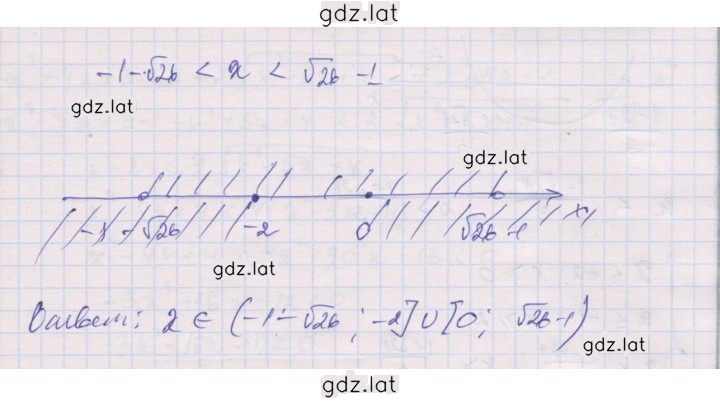 gdz.lat
-1-√26 < x < √26 -1
gdz.lat
gdz.lat
-1-√26 -2 0 √26-1 x
gdz.lat
Ответ: x ∈ (-1-√26; -2] ∪ [0; √26-1)
gdz.lat
gdz.lat